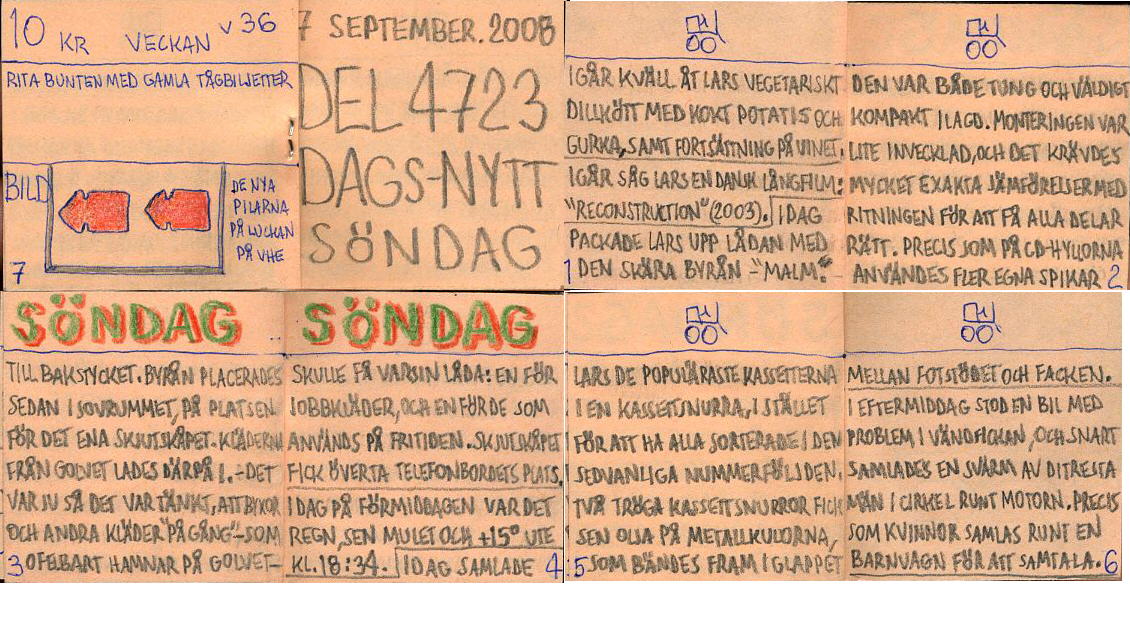 10 KR VECKAN v 36
RITA BUNTEN MED GAMLA TÅGBILJETTER
BILD
DE NYA
PILARNA
PÅ LUCKAN
PÅ VHE
7
7 SEPTEMBER. 2008
DEL 4723
DAGS-NYTT
SÖNDAG
IGÅR KVÄLL ÅT LARS VEGETARISKT
DILLKÖTT MED KOKT POTATIS OCH
GURKA, SAMT FORTSÄTTNING PÅ VINET.
IGÅR SÅG LARS EN DANSK LÅNGFILM:
"RECONSTRUKTION" (2003). IDAG
PACKADE LARS UPP LÅDAN MED
DEN SKÄRA BYRÅN - "MALM".
1
DEN VAR BÅDE TUNG OCH VÄLDIGT
KOMPAKT ILAGD. MONTERINGEN VAR
LITE INVECKLAD, OCH DET KRÄVDES
MYCKET EXAKTA JÄMFÖRELSER MED
RITNINGEN FÖR ATT FÅ ALLA DELAR
RÄTT. PRECIS SOM PÅ CD-HYLLORNA
ANVÄNDES FLER EGNA SPIKAR
2
SÖNDAG
TILL BAKSTYCKET. BYRÅN PLACERADES
SEDAN I SOVRUMMET, PÅ PLATSEN
FÖR DET ENA SKJUTSKÅPET. KLÄDERNA
FRÅN GOLVET LADES DÄRPÅ I. - DET
VAR JU SÅ DET VAR TÄNKT, ATT BYXOR
OCH ANDRA KLÄDER "PÅ GÅNG" - SOM
OFELBART HAMNAR PÅ GOLVET -
3
SÖNDAG
SKULLE FÅ VARSIN LÅDA: EN FÖR
JOBBKLÄDER, OCH EN FÖR DE SOM
ANVÄNDS PÅ FRITIDEN. SKJUTSKÅPET
FICK ÖVERTA TELEFONBORDETS PLATS.
IDAG PÅ FÖRMIDDAGEN VAR DET
REGN, SEN MULET OCH +15° UTE
KL. 18:34. IDAG SAMLADE
4
LARS DE POPULÄRASTE KASSETTERNA
I EN KASSETTSNURRA, I STÄLLET
FÖR ATT HA ALLA SORTERADE I DEN
SEDVANLIGA NUMMERFÖLJDEN.
TVÅ TRÖGA KASSETTSNURROR FICK
SEN OLJA PÅ METALLKULORNA,
SOM BÄNDES FRAM I GLAPPET
5
MELLAN FOTSTÖDET OCH FACKEN.
I EFTERMIDDAG STOD EN BIL MED
PROBLEM I VÄNDFICKAN, OCH SNART
SAMLADES EN SVÄRM AV DITRESTA
MÄN I CIRKEL RUNT MOTORN. PRECIS
SOM KVINNOR SAMLAS RUNT EN
BARNVAGN FÖR ATT SAMTALA.
6